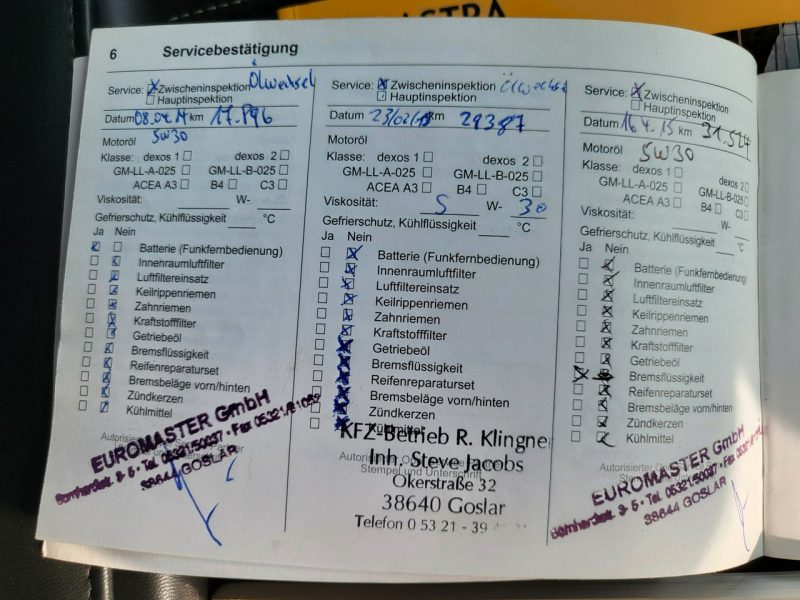 ASTRA
6 Servicebestätigung
Service: Zwischeninspektion Ölwechsel
Hauptinspektion
Datum km 17.896
Motoröl 5W30
Klasse: dexos 1 dexos 2
GM-LL-A-025 GM-LL-B-025
ACEA A3 B4 C3
Viskosität: W-
Gefrierschutz, Kühlflüssigkeit °C
Ja Nein
Batterie (Funkfernbedienung)
Innenraumluftfilter
Luftfiltereinsatz
Keilrippenriemen
Zahnriemen
Kraftstofffilter
Getriebeöl
Bremsflüssigkeit
Reifenreparaturset
Bremsbeläge vorn/hinten
Zündkerzen
Kühlmittel
EUROMASTER GmbH
Bornhardtstr. 3-5 • Tel. 05321/50037 • Fax 05321/81052
38644 GOSLAR
Service: Zwischeninspektion Ölwechsel
Hauptinspektion
Datum km 29387
Motoröl
Klasse: dexos 1 dexos 2
GM-LL-A-025 GM-LL-B-025
ACEA A3 B4 C3
Viskosität: 5 W- 30
Gefrierschutz, Kühlflüssigkeit °C
Ja Nein
Batterie (Funkfernbedienung)
Innenraumluftfilter
Luftfiltereinsatz
Keilrippenriemen
Zahnriemen
Kraftstofffilter
Getriebeöl
Bremsflüssigkeit
Reifenreparaturset
Bremsbeläge vorn/hinten
Zündkerzen
Kühlmittel
Stempel und Unterschrift
KFZ-Betrieb R. Klingne
Inh. Steve Jacobs
Okerstraße 32
38640 Goslar
Telefon 0 53 21 - 39
Service: Zwischeninspektion
Hauptinspektion
Datum 16.4.15 km 31.524
Motoröl 5W30
Klasse: dexos 1 dexos 2
GM-LL-A-025 GM-LL-B-025
ACEA A3 B4 C3
Viskosität: W-
Gefrierschutz, Kühlflüssigkeit °C
Ja Nein
Batterie (Funkfernbedienung)
Innenraumluftfilter
Luftfiltereinsatz
Keilrippenriemen
Zahnriemen
Kraftstofffilter
Getriebeöl
Bremsflüssigkeit
Reifenreparaturset
Bremsbeläge vorn/hinten
Zündkerzen
Kühlmittel
EUROMASTER GmbH
Bornhardtstr. 3-5 • Tel. 05321/50037 • Fax
38644 GOSLAR